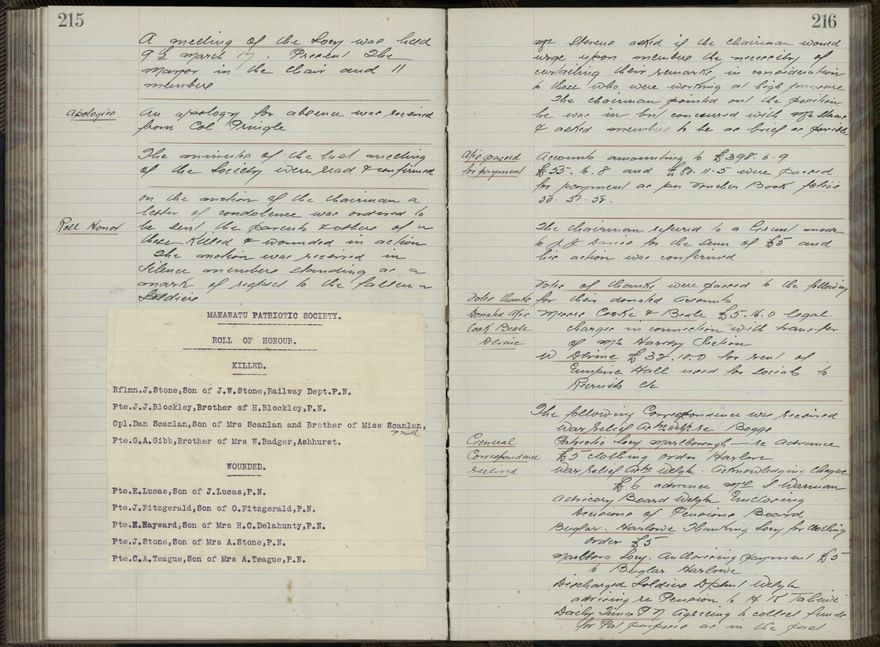 215
A meeting of the Socy was held
9th March 17. Present The
Mayor in the Chair and 11
members
Apologies
An apology for absence was received
from Col Pringle
The minutes of the last meeting
of the Society were read & confirmed
Roll Honor
On the motion of the Chairman a
letter of condolence was ordered to
be sent the parents & others of
those killed & wounded in action
The motion was received in
silence members standing as a
mark of respect to the fallen
Soldiers
MANAWATU PATRIOTIC SOCIETY.
ROLL OF HONOUR.
KILLED.
Rflmn.J.Stone,Son of J.W.Stone,Railway Dept.P.N.
Pte.J.J.Blockley,Brother of H.Blockley,P.N.
Cpl.Dan Scanlan,Son of Mrs Scanlan and Brother of Miss Scanlan,
P. North
Pte.G.A.Gibb,Brother of Mrs W.Badger,Ashhurst.
WOUNDED.
Pte.E.Lucas,Son of J.Lucas,P.N.
Pte.J.Fitzgerald,Son of O.Fitzgerald,P.N.
Pte.H.Hayward,Son of Mrs H.C.Delahunty,P.N.
Pte.J.Stone,Son of Mrs A.Stone,P.N.
Pte.C.A.Teague,Son of Mrs A.Teague,P.N.
216
Mr Stevens asked if the Chairman would
urge upon members the necessity of
curtailing their remarks in consideration
to those who were working at high pressure
The Chairman pointed out the position
he was in but concurred with Mr Stevens
& asked members to be as brief as possible
A/cs passed
for payment
Accounts amounting to £398.6.9
£55.16.8 and £80.11.5 were passed
for payment as per Voucher Book folios
56. 57. 58.
The Chairman referred to a Grant made
to for the sum of £5 and
his action was confirmed
Votes thanks
Donated A/cs
Cook Beale
Devine
Votes of thanks were passed to the following
for their donated accounts
Messrs Cooke & Beale £5.16.0 legal
charges in connection with transfer
of Mr Harvey Section
W Devine £37.10.0 for rent of
Empire Hall used for socials to
Recruits etc
General
Correspondence
received
The following Correspondence was received
War Relief re Boggs
Patriotic Socy Marlborough re advance
£5 clothing order Harlowe
War Relief Wgtn. Acknowledging cheque
£6 advance Mr J Warman
Advisory Board Wgtn Enclosing
decisions of Pensions Board
Bugler Harlowe Thanking Socy for clothing
order £5
Marlboro Socy. Authorising payment £5
to Bugler Harlowe
Discharged Soldiers Dept Wgtn
advising re Pension to H K
Daily Times P N agreeing to collect funds
for Pat purposes as in the past